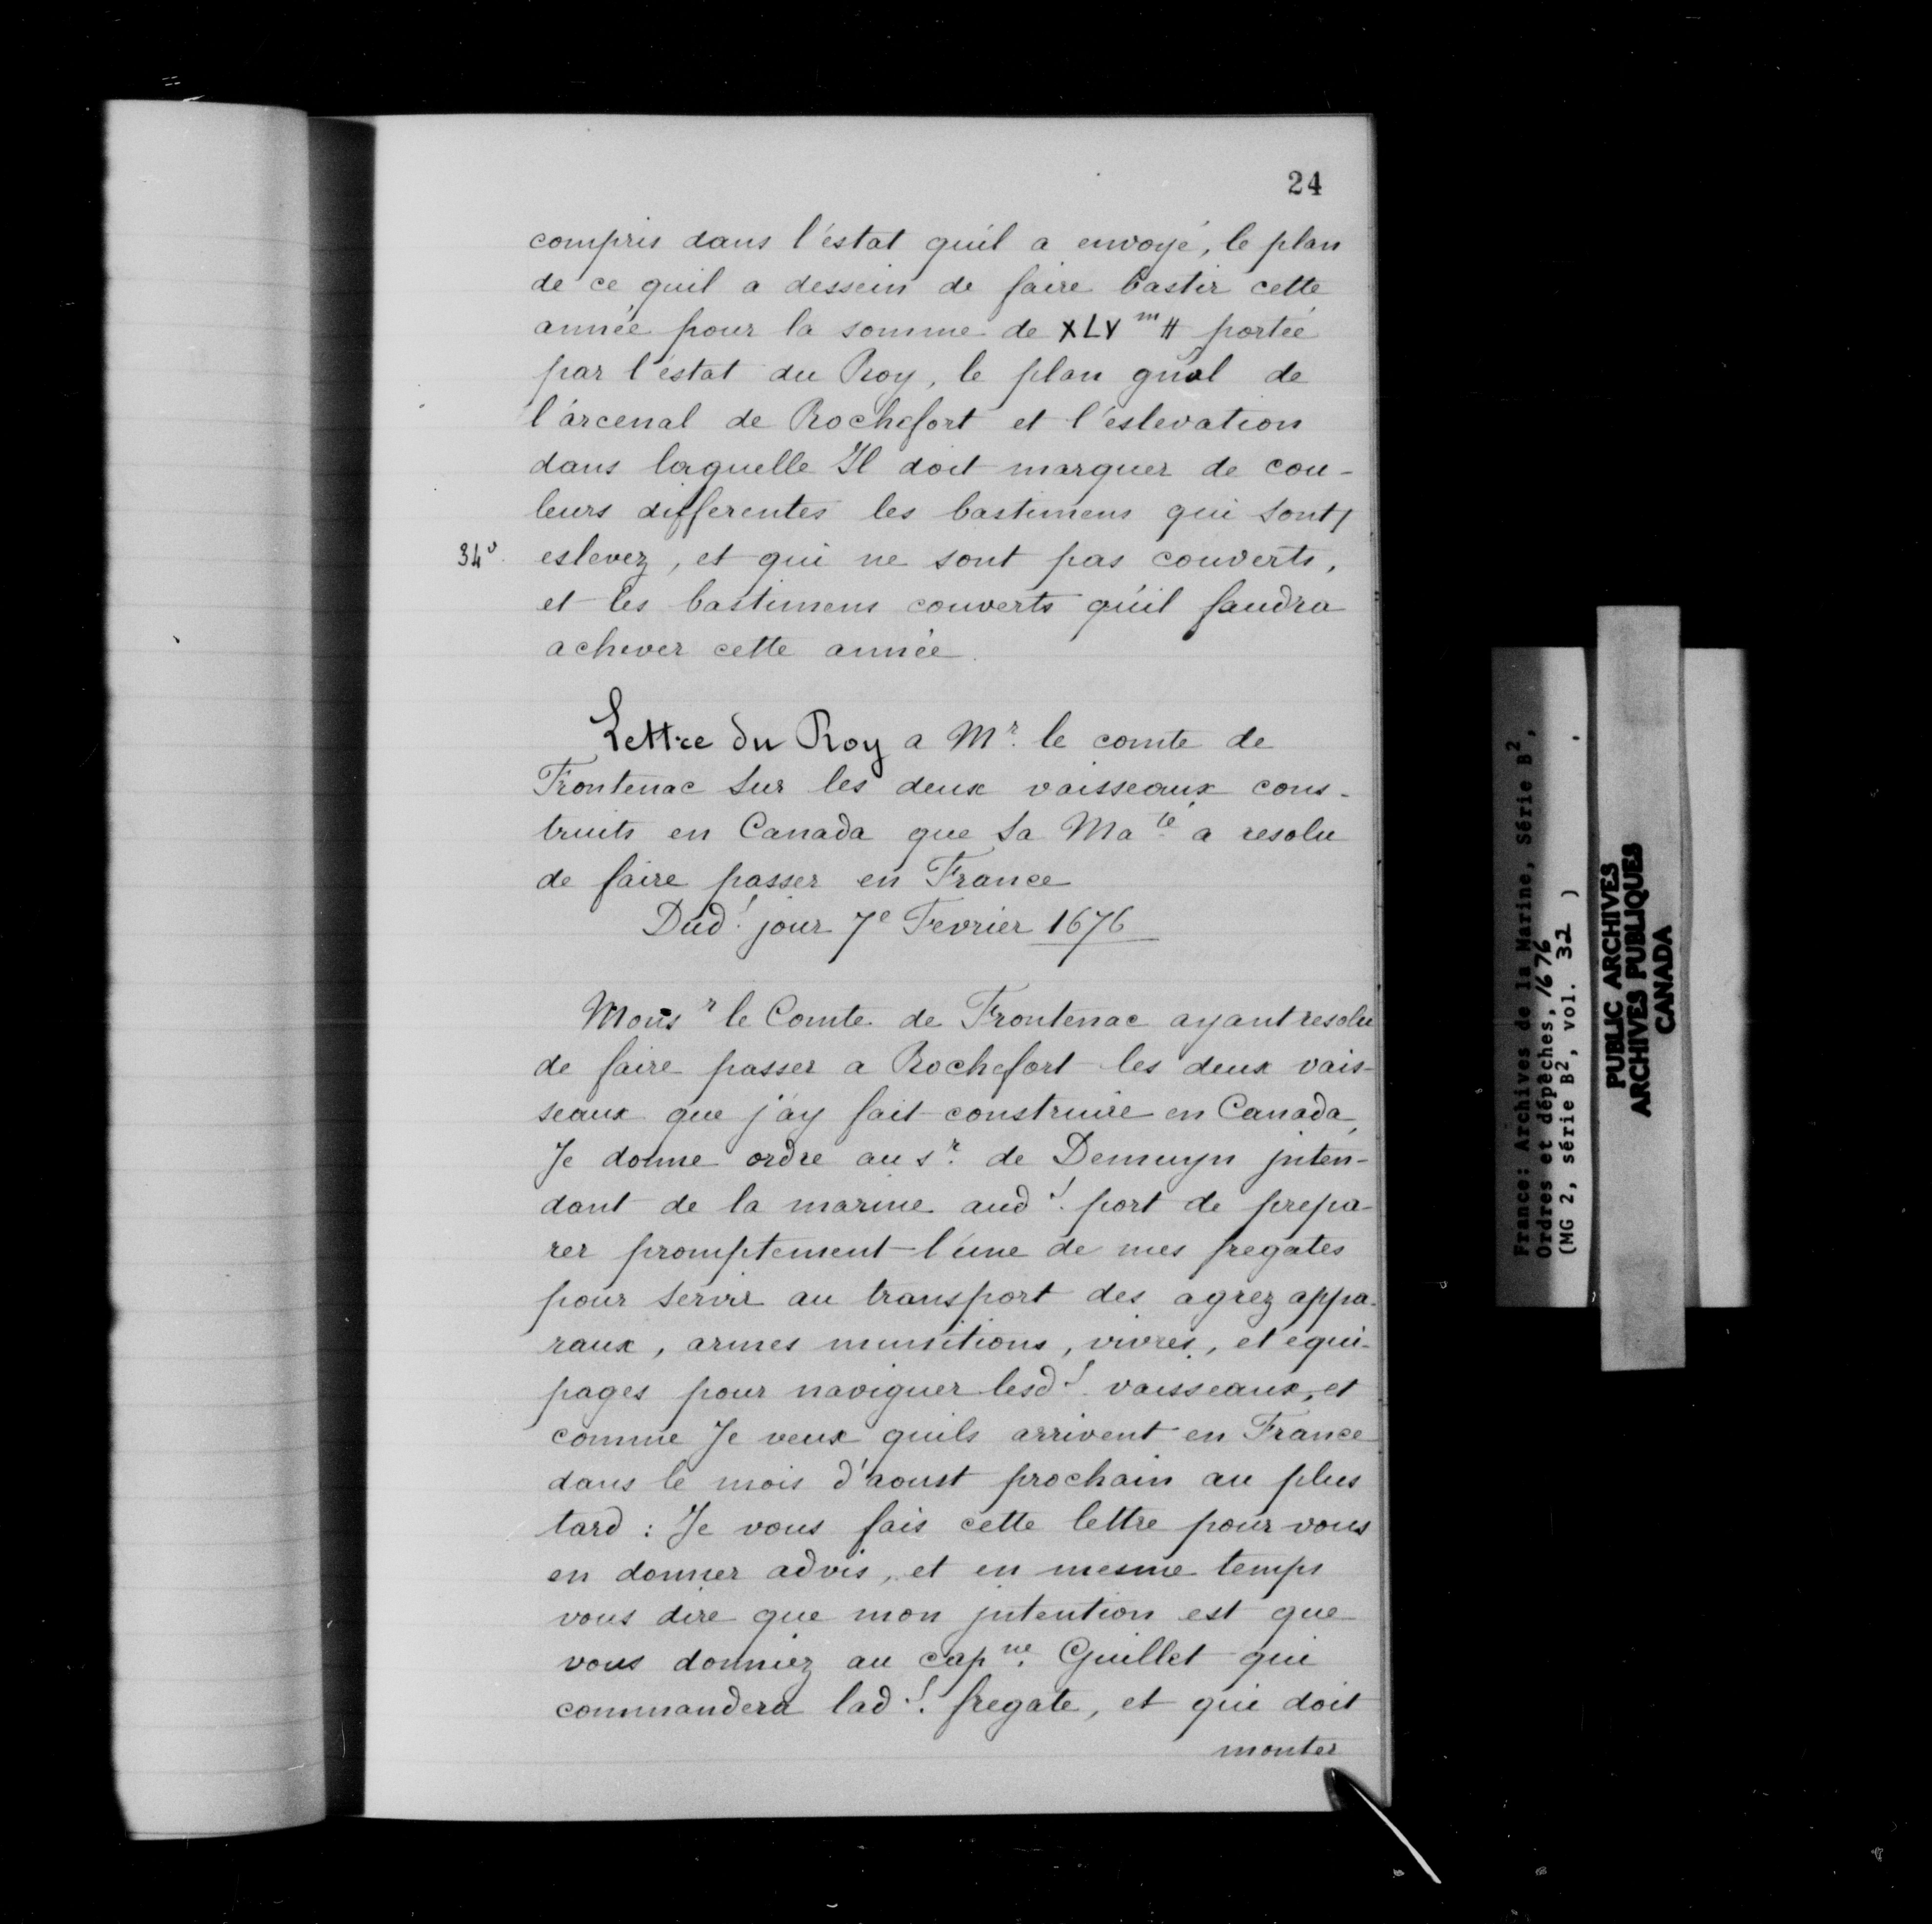 24
compris dans l'éstat qu'il a envoyé, le plan
de ce quil a dessein de faire bastir cette
année pour la somme de XLV m ₶ portée
par l'éstat du Roy, le plan gñal de
l'árcenal de Rochefort et l'éslevation
dans laquelle Il doit marquer de cou-
leurs differentes les bastimens qui sont/
34v. eslevez, et qui ne sont pas couverts,
et les bastimens couverts qu'il faudra
achever cette année.
Lettre du Roy a Mr. le comte de
Frontenac sur les deux vaisseaux cons-
truits en Canada que sa Ma té a resolu
de faire passer en France
Dud! jour 7e Fevrier 1676
Mons r le Comte de Frontenac ayant resolu
de faire passer a Rochefort les deux vais-
seaux que j'ay fait construire en Canada,
Je donne ordre au sr. de Demuyn jnten-
dant de la marine aud! port de prepa-
rer promptement l'une de mes fregates
pour servir au transport des agrez appa-
raux, armes munitions, vivres, et equi-
pages pour naviguer lesd! vaisseaux, et
comme Je veux quils arrivent en France
dans le mois d'aoust prochain au plus
tard : Je vous fais cette lettre pour vous
en donner advis, et en mesme temps
vous dire que mon jntention est que
vous donniez au cap ne. Guillet qui
commandera lad! fregate, et qui doit
monter
France: Archives de la Marine, Série B2,
Ordres et dépêches, 1676
(MG 2, série B2, vol. 32 )
PUBLIC ARCHIVES
ARCHIVES PUBLIQUES
CANADA